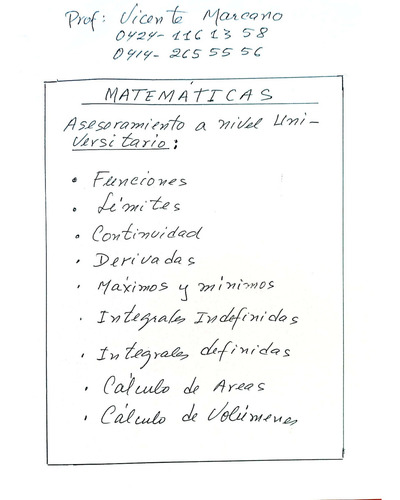 Prof: Vicente Marcano
0424-116 13 58
0414-265 55 56
MATEMÁTICAS
Asesoramiento a nivel Uni-
versitario:
• Funciones
• Límites
• Continuidad
• Derivadas
• Máximos y mínimos
• Integrales Indefinidas
• Integrales definidas
• Cálculo de Areas
• Cálculo de Volúmenes